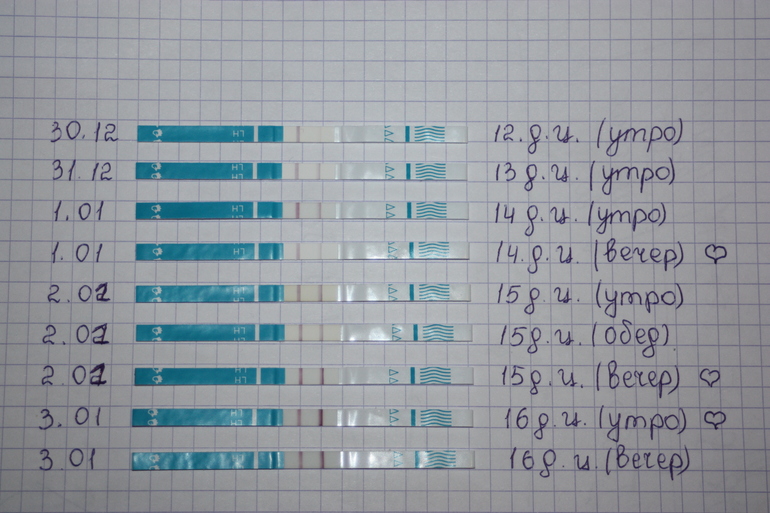 30.12 LH 12.д.ц. (утро)
31.12 LH 13 д.ц. (утро)
1.01 LH 14 д.ц. (утро)
1.01 LH 14.д.ц. (вечер) ♡
2.01 LH 15 д.ц. (утро)
2.01 LH 15 д.ц. (обед)
2.01 LH 15 д.ц. (вечер) ♡
3.01 LH 16 д.ц. (утро) ♡
3.01 LH 16 д.ц. (вечер)